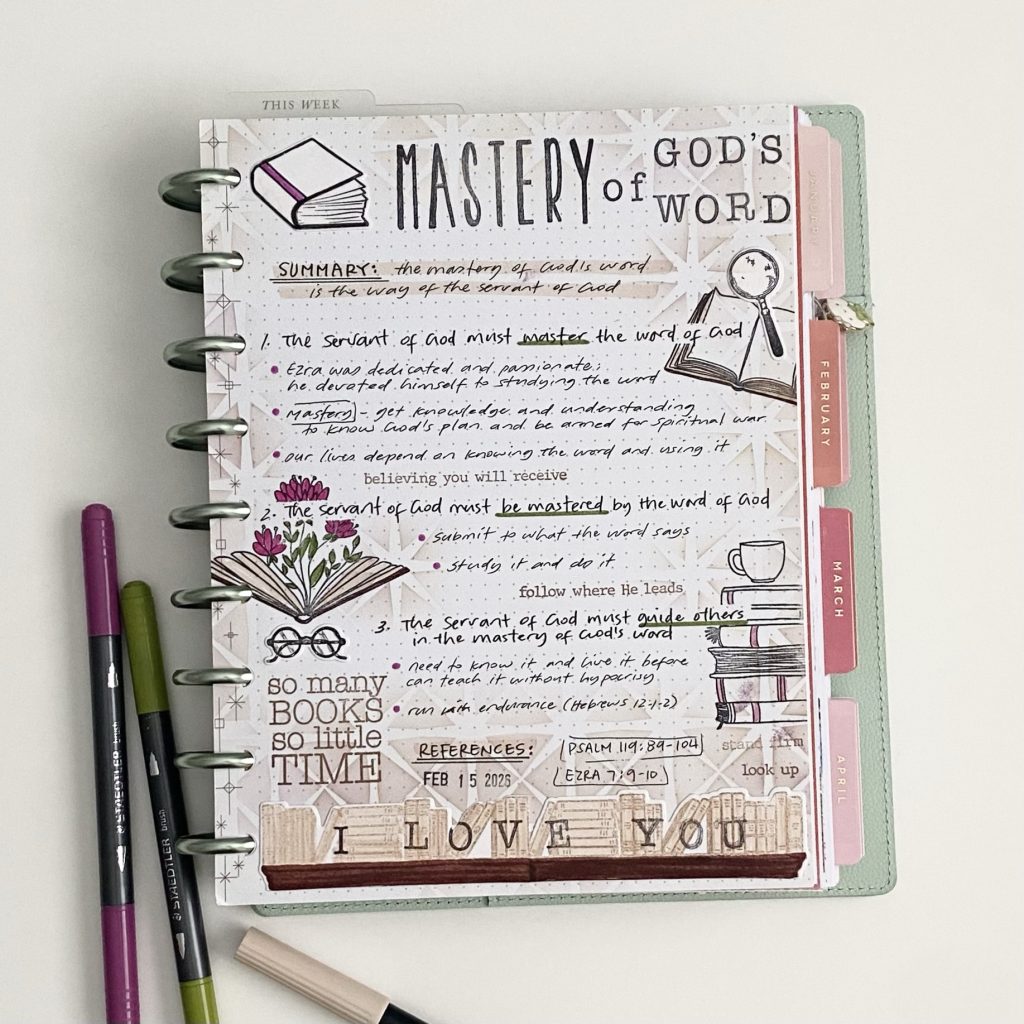 THIS WEEK
MASTERY of GOD'S WORD
SUMMARY: the mastery of God's word
is the way of the servant of God
1. The servant of God must master the word of God
• Ezra was dedicated and passionate;
he devoted himself to studying the word
• Mastery - get knowledge and understanding
to know God's plan and be armed for spiritual war
• our lives depend on knowing the word and using it
believing you will receive
2. The servant of God must be mastered by the word of God
• submit to what the word says
• study it and do it
follow where He leads
3. The servant of God must guide others
in the mastery of God's word
• need to know it and live it before
can teach it without hypocrisy
• run with endurance (Hebrews 12:1-2)
so many
BOOKS
so little
TIME
REFERENCES:
FEB 15 2026
PSALM 119:89-104
EZRA 7:9-10
stand firm
look up
I LOVE YOU
JANUARY
FEBRUARY
MARCH
APRIL
STAEDTLER brush
STAEDTLER brush